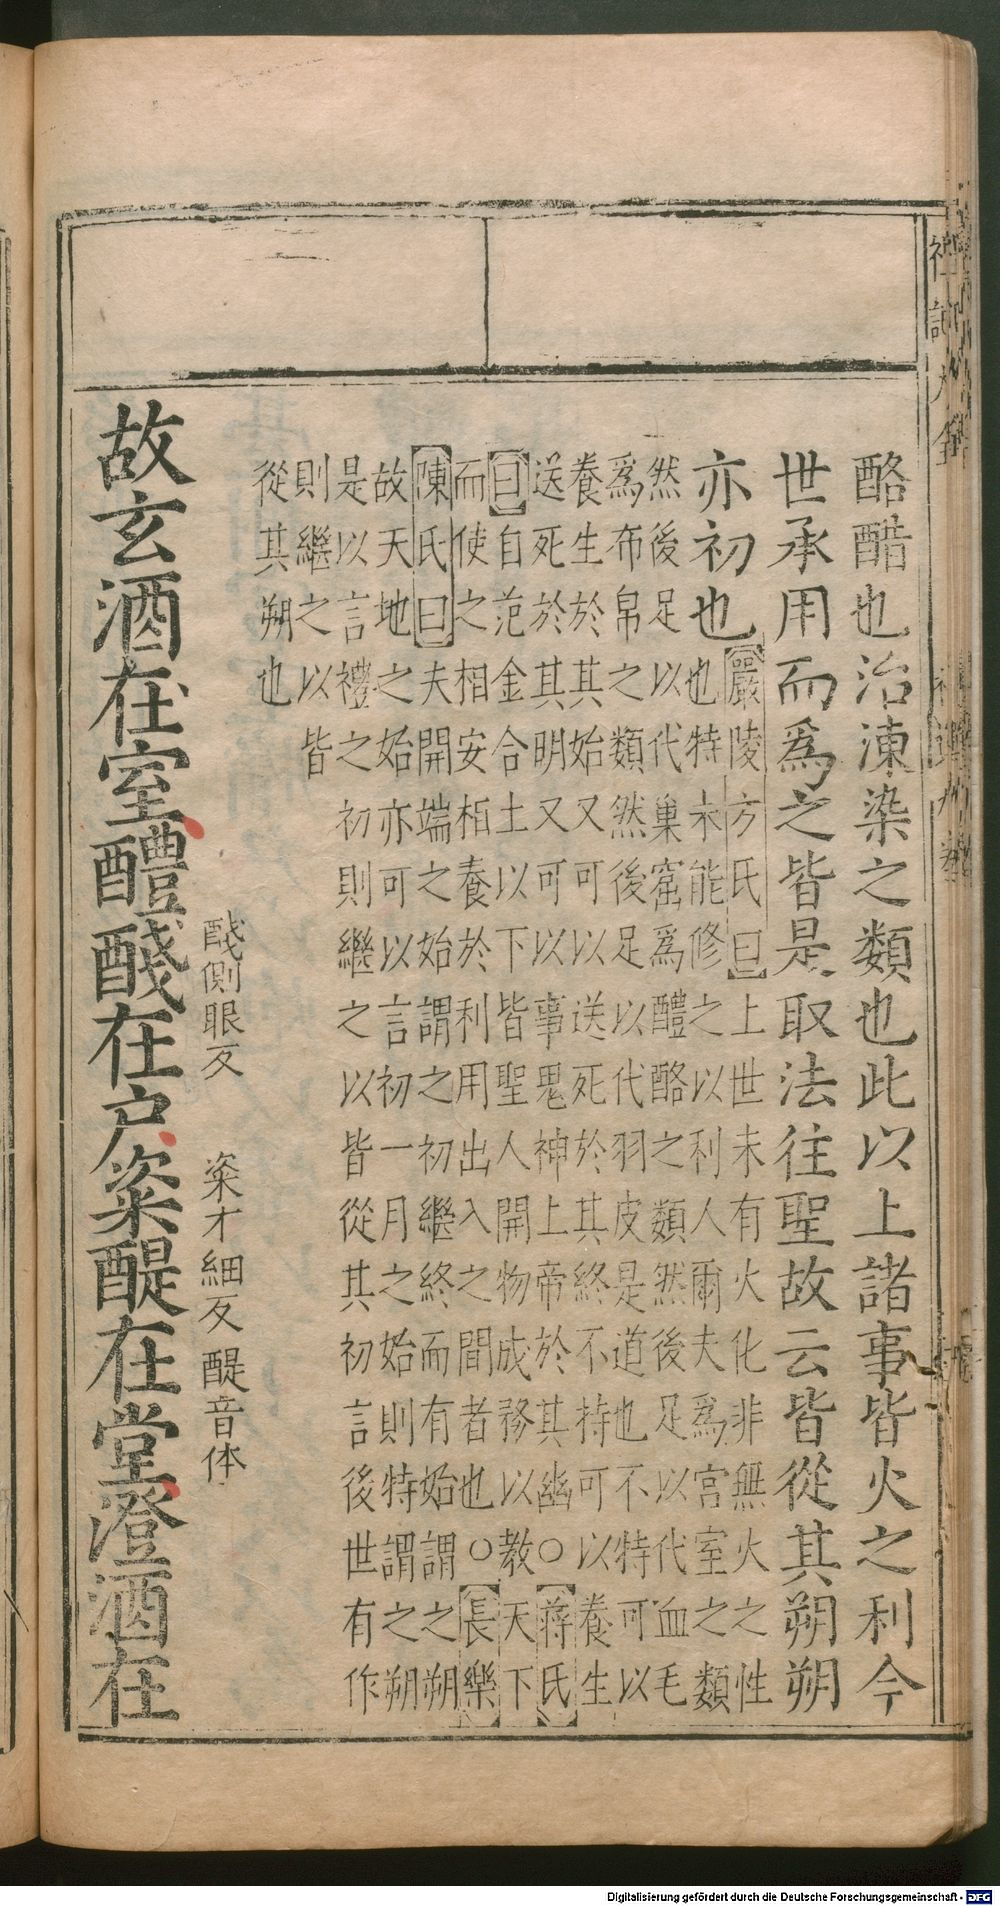 酪醋也治湅染之類也此以上諸事皆火之利今
世承用而爲之皆是取法往聖故云皆從其朔朔
亦初也
嚴陵方氏曰上世未有火化非無火之性
也特未能修之以利人爾夫爲宮室之類
然後足以代巢窟爲醴酪之類然後足以代血毛
爲布帛之類然後足以代羽皮是道也不特可以
養生於其始又可以送死於其終不持可以養生
送死於其明又可以事鬼神上帝於其幽○蔣氏
曰自范金合土以下皆聖人開物成務以教天下
而使之相安栢養於利用出入之間者也○長樂
陳氏曰夫開端之始謂之初繼終而有始謂之朔
故天地之始亦可以言初一月之始則特謂之朔
是以言禮之初則繼之以皆從其初言後世有作
則繼之以皆
從其朔也
醆側眼反 粢才細反 醍音体
故玄酒在室醴醆在户粢醍在堂澄酒在
Digitalisierung gefördert durch die Deutsche Forschungsgemeinschaft - DFG